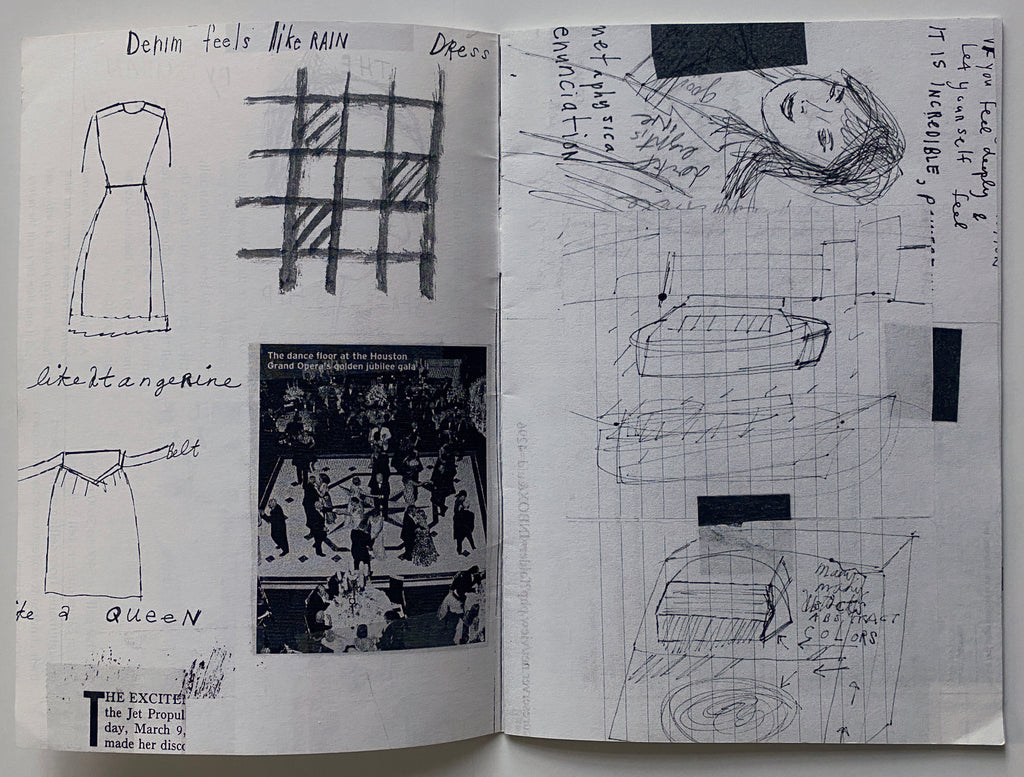 Denim feels like RAIN
DRess
like A tangeRine
Belt
ke a QUEEN
The dance floor at the Houston
Grand Opera's golden jubilee gala
THE EXCITE
the Jet Propul
day, March 9,
made her disco
metaphysica
enunciation
good
If you feel deeply &
Let yourself feel
IT IS INCREDIBLE,
many
mini
OBJECTS
ABSTRACT
COLORS